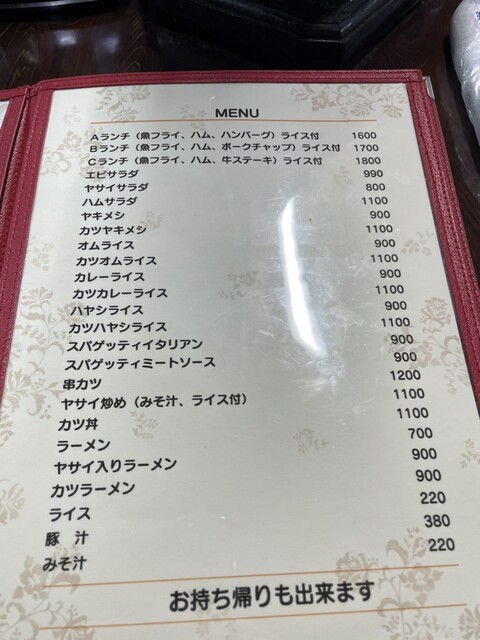 MENU
Aランチ（魚フライ、ハム、ハンバーグ）ライス付 1600
Bランチ（魚フライ、ハム、ポークチャップ）ライス付 1700
Cランチ（魚フライ、ハム、牛ステーキ）ライス付 1800
エビサラダ 990
ヤサイサラダ 800
ハムサラダ 1100
ヤキメシ 900
カツヤキメシ 1100
オムライス 900
カツオムライス 1100
カレーライス 900
カツカレーライス 1100
ハヤシライス 900
カツハヤシライス 1100
スパゲッティイタリアン 900
スパゲッティミートソース 900
串カツ 1200
ヤサイ炒め（みそ汁、ライス付） 1100
カツ丼 1100
ラーメン 700
ヤサイ入りラーメン 900
カツラーメン 900
ライス 220
豚 汁 380
みそ汁 220
お持ち帰りも出来ます